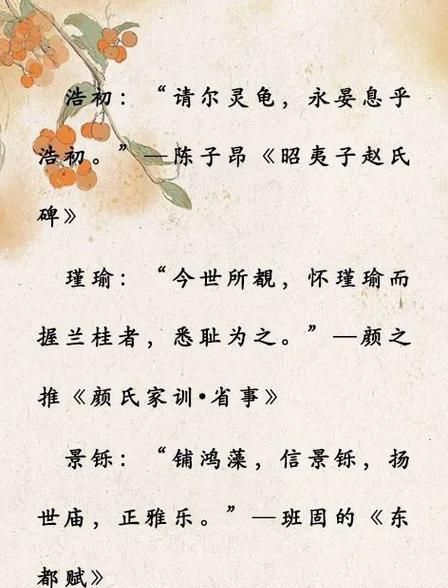 浩初：“请尔灵龟，永晏息乎
浩初。”—陈子昂《昭夷子赵氏
碑》
瑾瑜：“今世所覩，怀瑾瑜而
握兰桂者，悉耻为之。”—颜之
推《颜氏家训•省事》
景铄：“铺鸿藻，信景铄，扬
世庙，正雅乐。”—班固的《东
都赋》